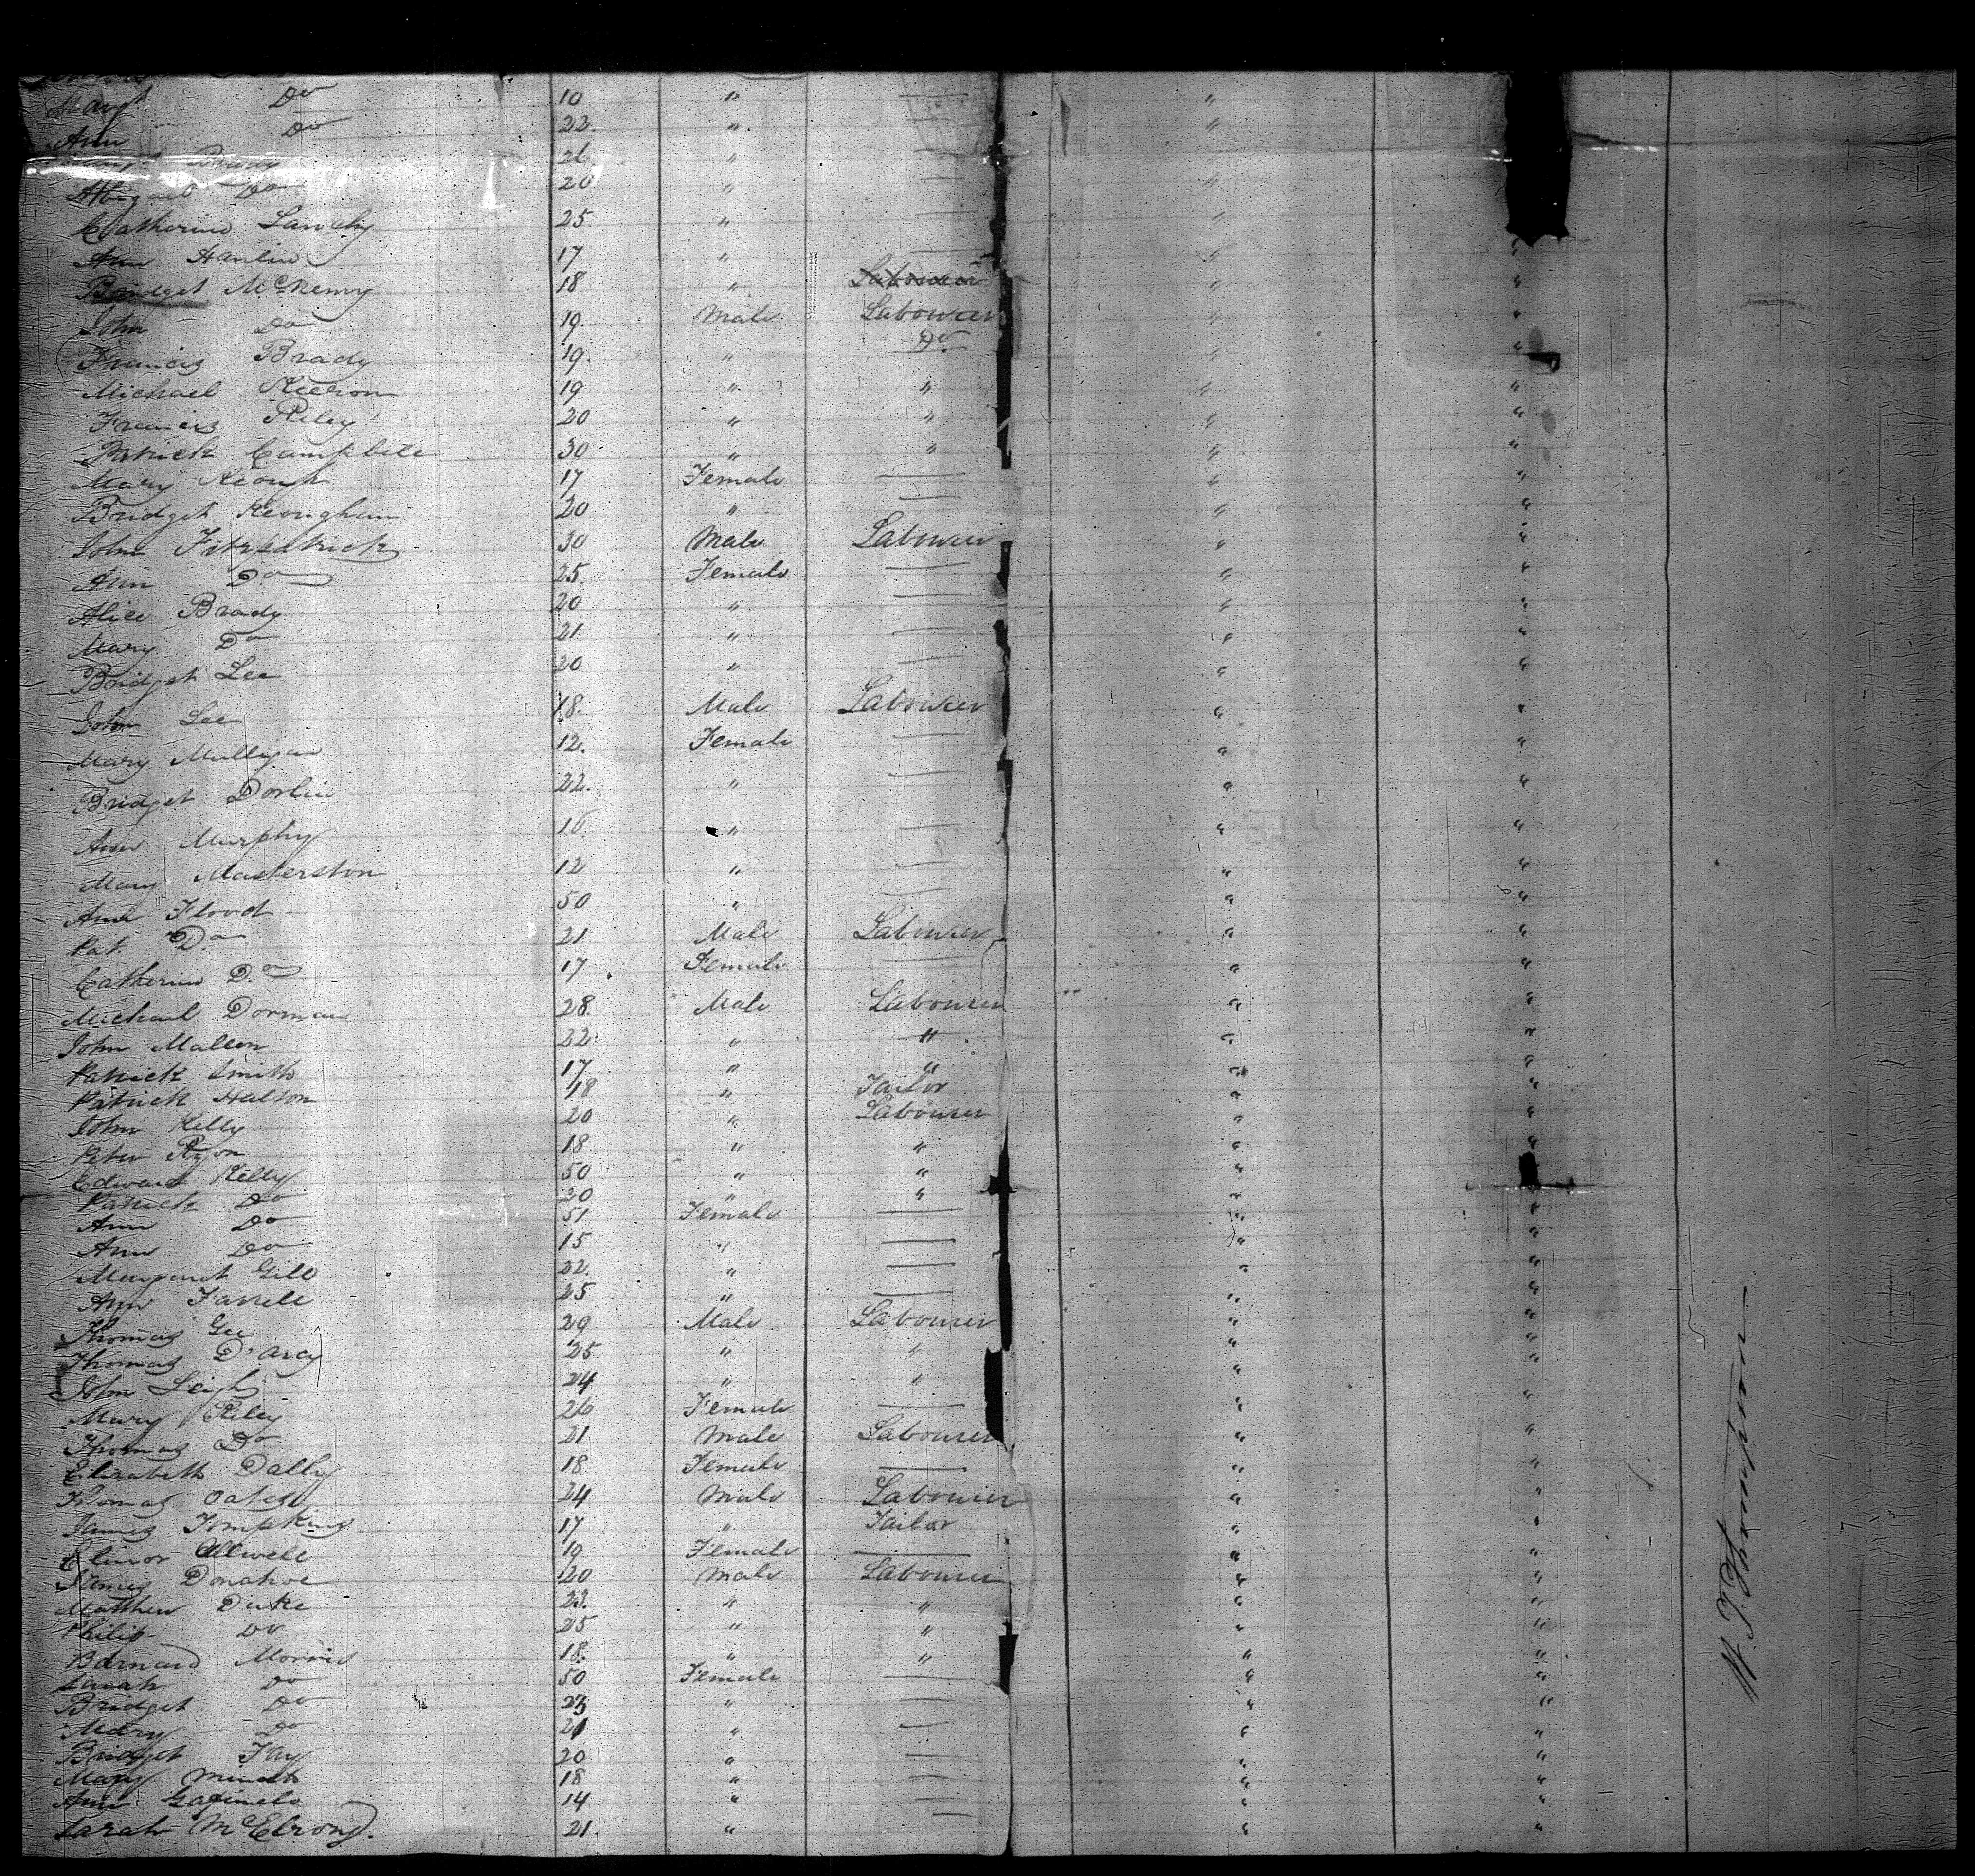 Margt Do 10 " — "
Ann Do 22. " — "
Brady 26. " — "
Abigail Do 20 " — "
Catherine 25 " — " "
Ann Hanlin 17 " — " "
Bridget McKemy 18 " Labourer " "
John Do 19. Male Labourer " "
Francis Brady 19. " Do " "
Michael 19 " " " "
Francis Riley 20 " " " "
Patrick Campbell 30 " " " "
Mary Keough 17 Female — " "
Bridget Keoughan 20 " — " "
John Fitzpatrick 30 Male Labourer " "
Ann Do 25. Female — " "
Alice Brady 20 " — " "
Mary Do 21 " — " "
Bridget Lee 20 " — " "
John Lee 18. Male Labourer " "
Mary Mulligan 12. Female — " "
Bridget Dorlin 22. " — " "
Ann Murphy 16 " — " "
Mary Masterston 12 " — " "
Ann Flood 50 " — " "
Pat. Do 21 Male Labourer " "
Catherine Do 17 Female — " "
Michael Dorman 28. Male Labourer " "
John Mallen 22 " " " "
Patrick Smith 17 " " " "
Patrick Halton 18 " Tailor " "
John Kelly 20 " Labourer " "
Peter Ryon 18 " " " "
Edward Kelly 50 " " " "
Patrick Do 20 " " " "
Ann Do 51 Female — " "
Ann Do 15 " — " "
Margaret Gill 22. " — " "
Ann Farrell 25 " — " "
Thomas Gee 29 Male Labourer " "
Thomas D'arcy 25 " " " "
John Leigh 24 " " " "
Mary Riley 26 Female — " "
Thomas Do 21 Male Labourer " "
Elizabeth Dally 18 Female — " "
Thomas Oates 24 Male Labourer " "
James Tompkins 17 " Tailor " "
Elinor Allwell 19 Female — " "
James Donahoe 20 Male Labourer " "
Matthew Duke 23. " " " "
Philip Do 25 " " " "
Barnard Morris 18. " " " "
Sarah Do 50 Female — " "
Bridget Do 23 " — " "
Mary Do 21 " — " "
Bridget Fay 20 " — " "
Mary 18 " — " "
Ann 14 " — " "
Sarah McElrony. 21. " — " "
W. T. Thompson